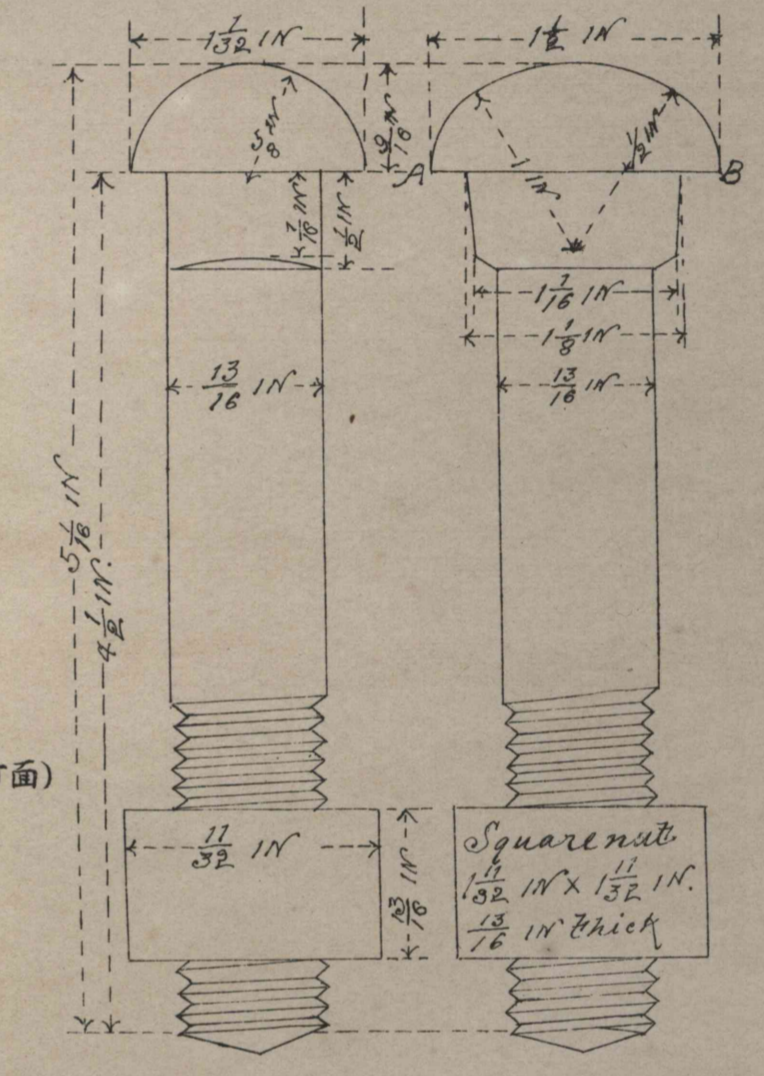 1 7/32 IN
1 1/2 IN
5/8 IN
9/16 IN
A
B
1 IN
1/2 IN
7/16 IN
1/2 IN
1 1/16 IN
1 1/8 IN
13/16 IN
13/16 IN
5 1/16 IN
4 1/2 IN.
面)
11/32 IN
13/16 IN
Square nut
1 11/32 IN X 1 11/32 IN.
13/16 IN thick